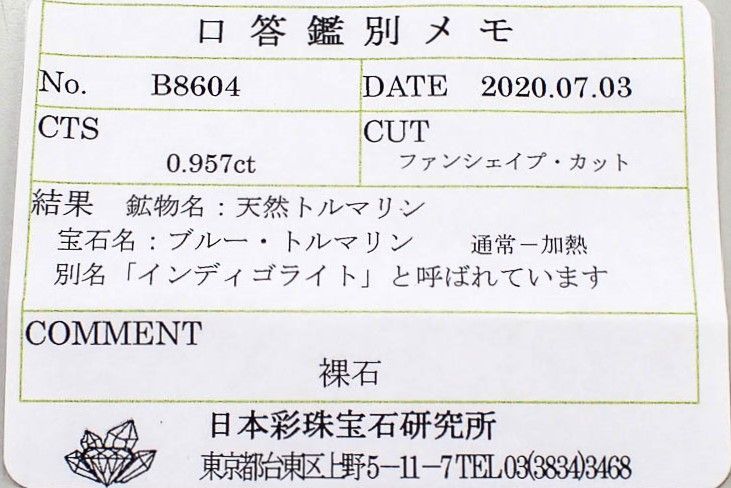 口答鑑別メモ
No. B8604 DATE 2020.07.03
CTS CUT
0.957ct ファンシェイプ・カット
結果 鉱物名：天然トルマリン
宝石名：ブルー・トルマリン 通常－加熱
別名「インディゴライト」と呼ばれています
COMMENT
裸石
日本彩珠宝石研究所
東京都台東区上野5-11-7 TEL 03(3834)3468